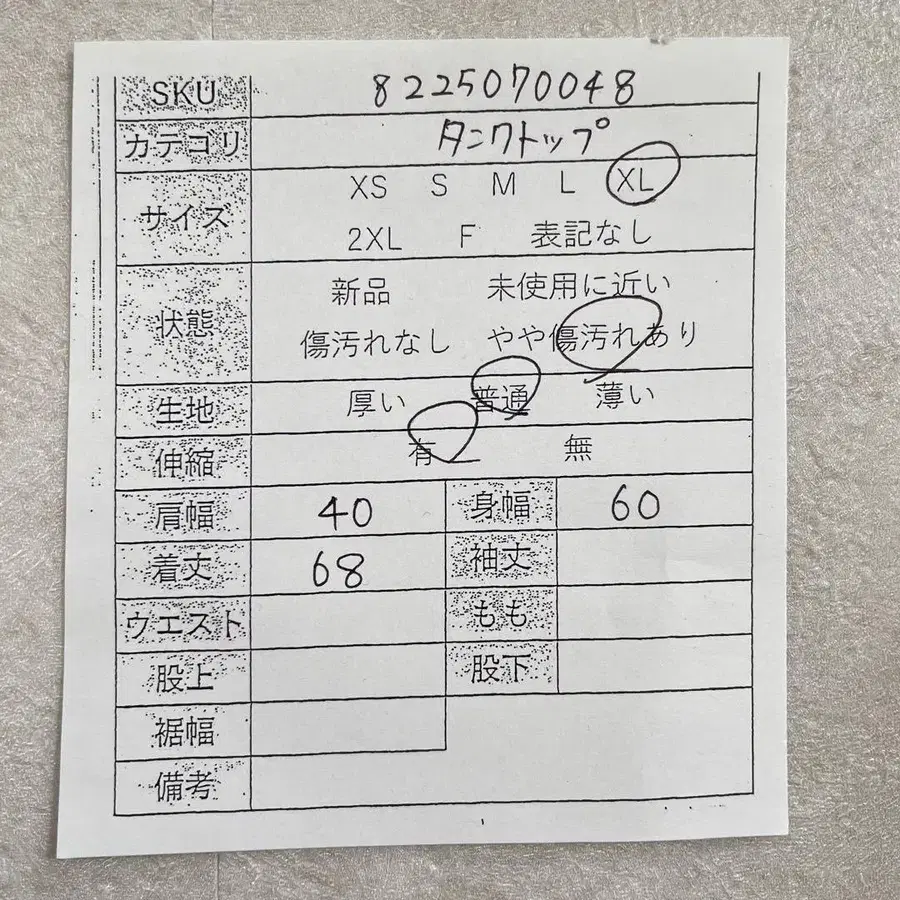 SKU 8225070048
カテゴリ タンクトップ
サイズ XS S M L XL
2XL F 表記なし
状態 新品 未使用に近い
傷汚れなし やや傷汚れあり
生地 厚い 普通 薄い
伸縮 有 無
肩幅 40 身幅 60
着丈 68 袖丈
ウエスト もも
股上 股下
裾幅
備考